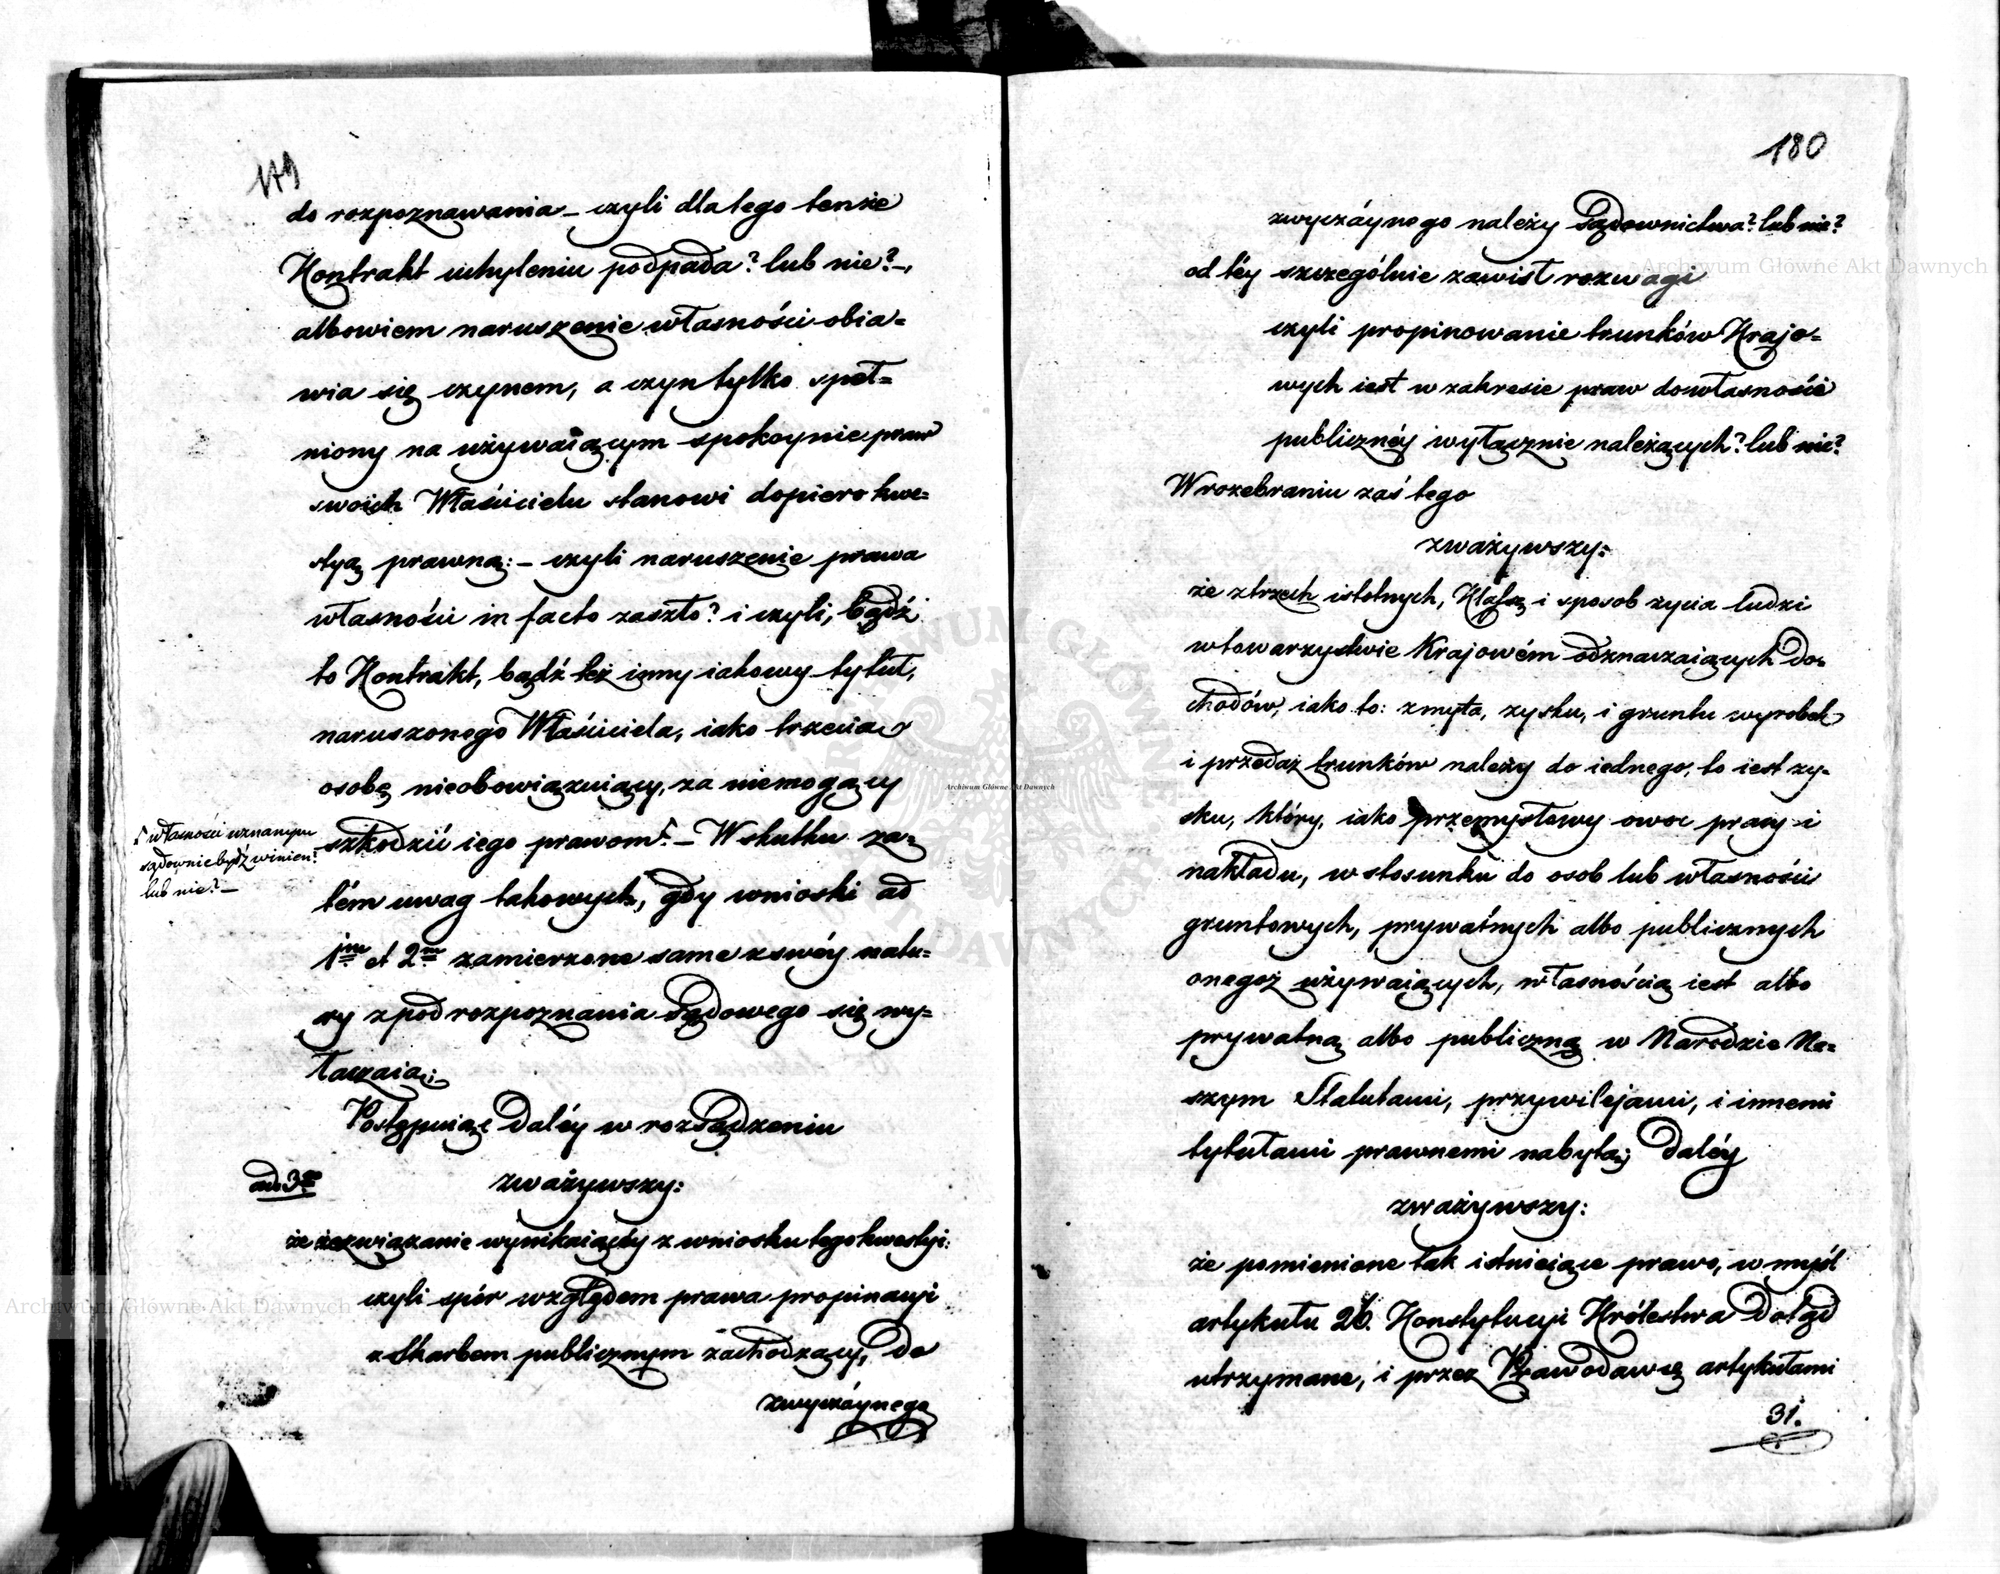 179
do rozpoznawania – czyli dla tego tenże
Kontrakt uchyleniu podpada? lub nie? –,
albowiem naruszenie własności obia=
wia się czynem, a czyn tylko speł=
niony na używaiącym spokoynie praw
swoich Właścicielu stanowi dopiero kwe=
styą prawną: – czyli naruszenie prawa
własności in facto zaszło? i czyli, bądź
to Kontrakt, bądź też inny iakowy tytuł,
naruszonego Właściciela, iako trzecią
osobę nieobowiązuiący, za niemogący
szkodzić iego prawom
własności uznanym
sądownie bydź winien?
lub nie? –
– W skutku za=
tém uwag takowych, gdy wnioski ad
1m et 2m zamierzone same z swéy natu=
ry z pod rozpoznania Sądowego się wy=
łączaią;
Postępuiąc daléy w rozsądzeniu
ad 3m zważywszy:
że rozwiązanie wynikaiącéy z wniosku tego kwestyi:
czyli spór względem prawa propinacyi
z Skarbem publicznym zachodzący, do
zwyczáynego
180
zwyczáynego należy Sądownictwa? lub nie?
od téy szczególnie zawisł rozwagi
czyli propinowanie trunków Krajo=
wych iest w zakresie praw do własności
publicznéy wyłącznie należących? lub nie?
W rozebraniu zaś tego
zważywszy:
że z trzech istotnych, Klassę i sposob życia ludzi
w towarzystwie Krajowém odznaczaiących do=
chodów, iako to: z myta, zysku, i gruntu wyrobek
i przedaż trunków należy do iednego, to iest zy=
sku, który, iako przemysłowy owoc pracy i
nakładu, w stosunku do osob lub własności
gruntowych, prywatnych albo publicznych
onegoż używaiących, własnością iest albo
prywatną albo publiczną w Narodzie Na=
szym Statutami, przywilejami, i innemi
tytułami prawnemi nabytą; daléy
zważywszy:
że pomienione tak istnieiące prawo, w myśl
artykułu 26. Konstytucyi Królestwa dotąd
utrzymane, i przez Prawodawcę artykułami
31.
Archiwum Główne Akt Dawnych
Archiwum Główne Akt Dawnych
Archiwum Główne Akt Dawnych
ARCHIWUM GŁÓWNE AKT DAWNYCH